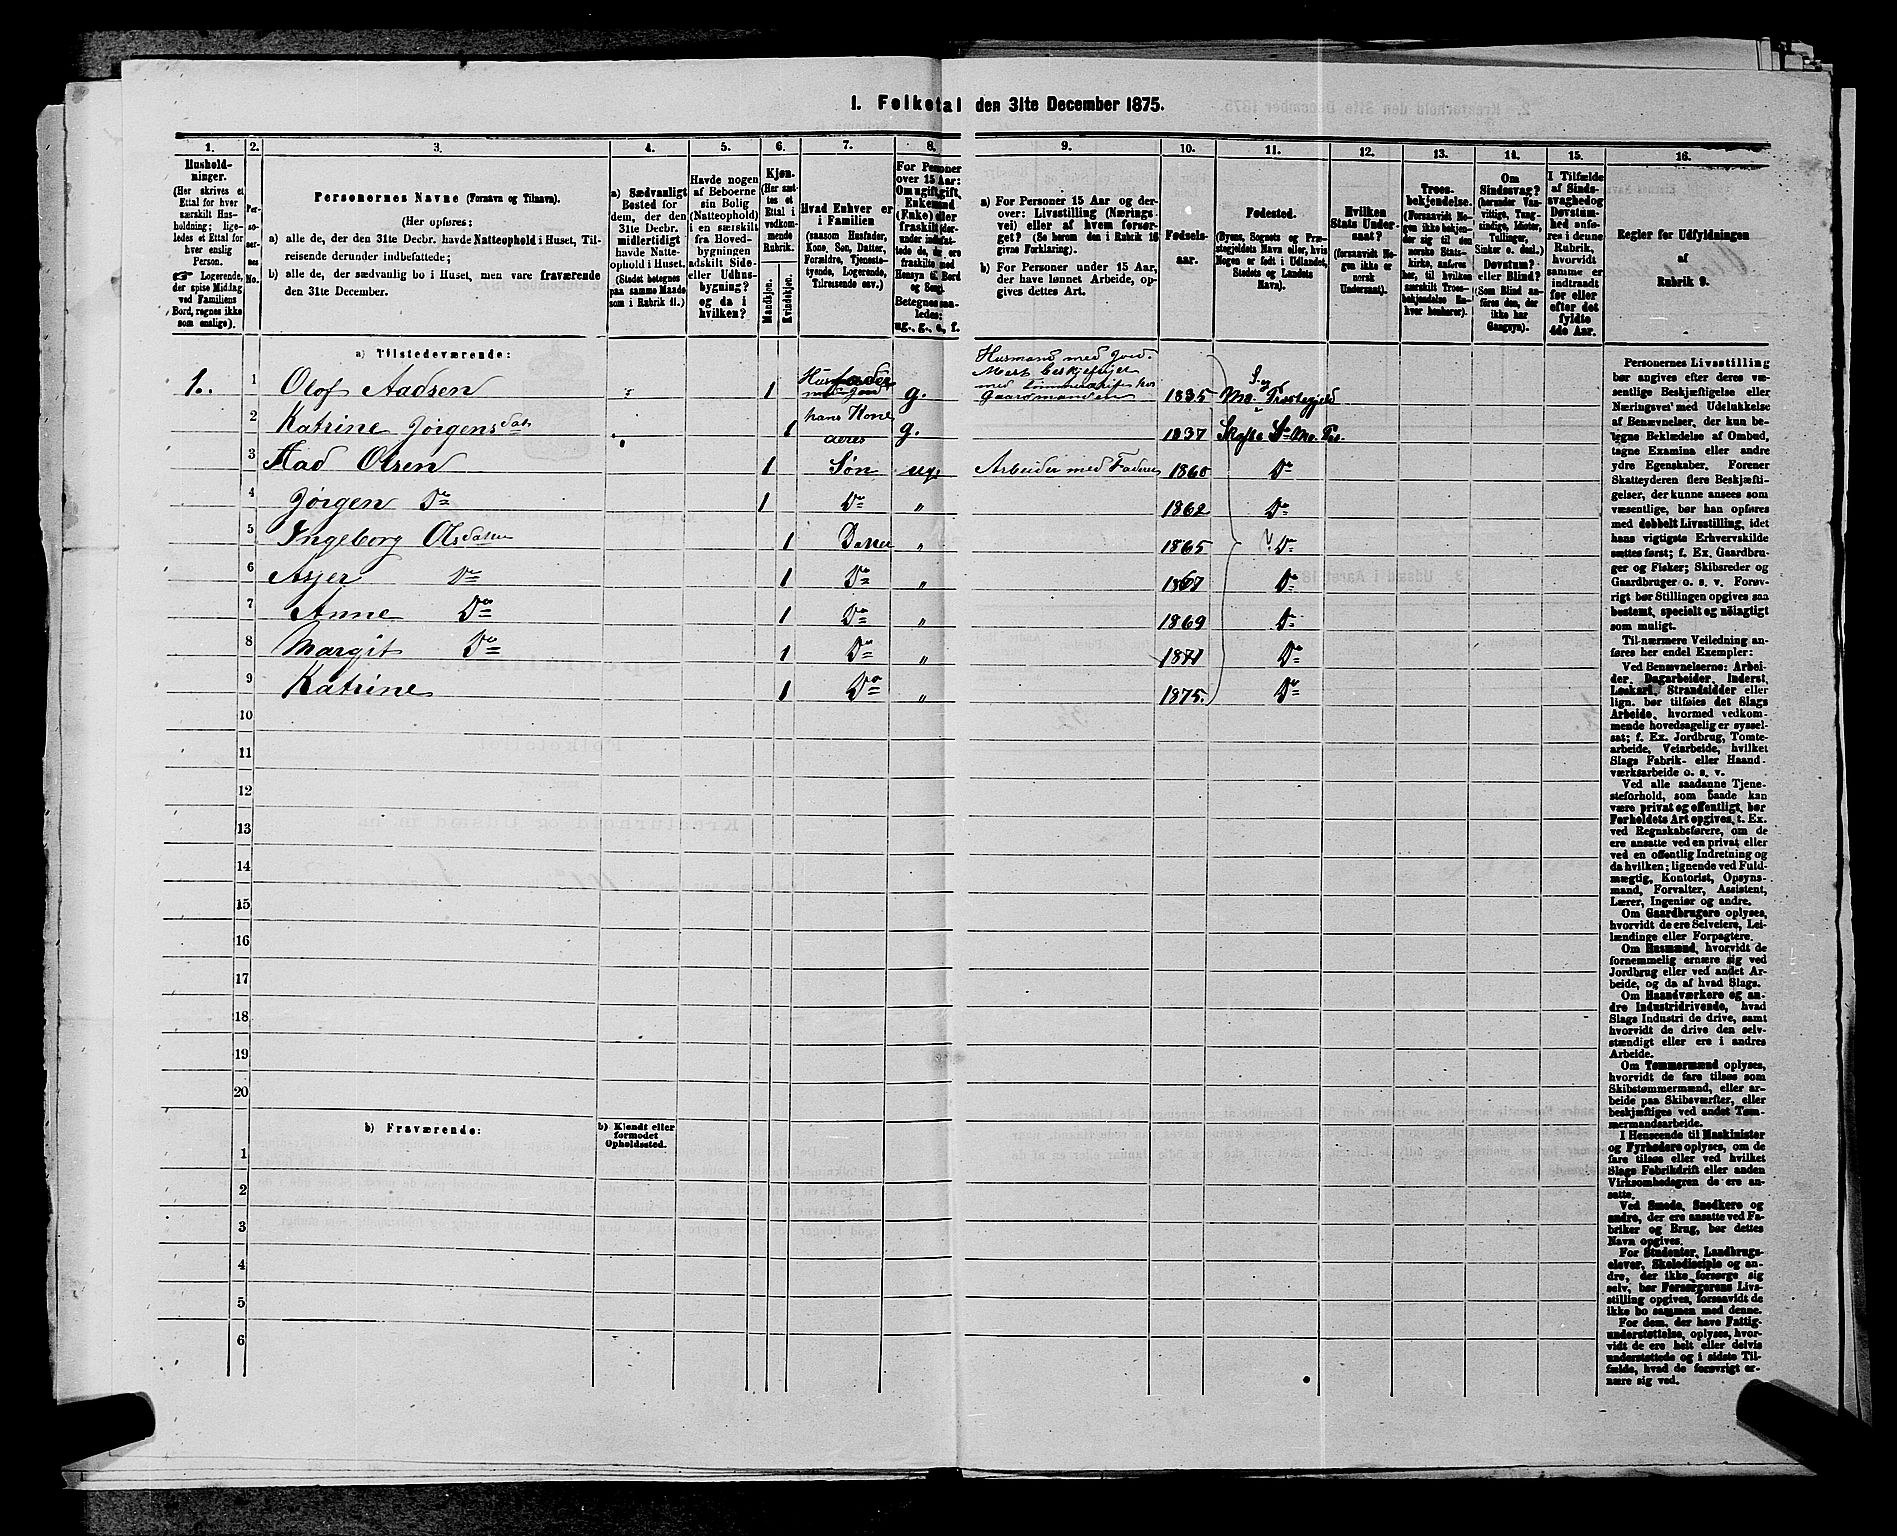 1. Folketal den 31te December 1875.
1. 2. 3. 4. 5. 6. 7. 8. 9. 10. 11. 12. 13. 14. 15. 16.
Hushold-
ninger.
(Her skrives et
Ettal for hver
særskilt Hus-
holdning; lige-
ledes et Ettal for
hver enslig
Person.
Logerende,
der spise Middag
ved Familiens
Bord, regnes ikke
som enslige).
Per-
so-
ner-
nes
No.
Personernes Navne (Fornavn og Tilnavn).
(Her opføres:
a) alle de, der den 31te Decbr. havde Natteophold i Huset, Til-
reisende derunder indbefattede;
b) alle de, der sædvanlig bo i Huset, men vare fraværende
den 31te December.
a) Sædvanligt
Bosted for
dem, der den
31te Decbr.
midlertidigt
havde Natte-
ophold i Huset.
(Stedet betegnes
paa samme Maade
som i Rubrik 11.)
Havde nogen
af Beboerne
sin Bolig
(Natteophold)
i en særskilt
fra Hoved-
bygningen
adskilt Side-
eller Udhus-
bygning?
og da i
hvilken?
Kjøn.
(Her sæt-
tes et
Ettal i
vedkom-
mende
Rubrik.
Mandkjøn.
Kvindekjøn.
Hvad Enhver er
i Familien
(saasom Husfader,
Kone, Søn, Datter,
Forældre, Tjeneste-
tyende, Logerende,
Tilreisende osv.)
For Personer
over 15 Aar:
Om ugift, gift,
Enkemand
(Enke) eller
fraskilt (der-
under indfat-
tede de, der ere
fraskilte med
Hensyn til Bord
og Seng).
Betegnes saa-
ledes:
ug., g., e., f.
a) For Personer 15 Aar og der-
over: Livsstilling (Nærings-
vei) eller af hvem forsør-
get? (Se herom den i Rubrik 16
givne Forklaring).
b) For Personer under 15 Aar,
der have lønnet Arbeide, op-
gives dettes Art.
Fødsels-
aar.
Fødested.
(Byens, Sognets og Præ-
stegjeldets Navn eller, hvis
Nogen er født i Udlandet,
Stedets og Landets
Navn).
Hvilken
Stats Under-
saat?
(forsaavidt No-
gen ikke er
norsk
Undersaat).
Troes-
bekjendelse.
(Forsaavidt No-
gen ikke bekjen-
der sig til den
norske Stats-
kirke, anføres
her, til hvilken
særskilt Troes-
bekjendelse En-
hver henhører).
Om
Sindssvag?
(herunder Van-
vittige, Tung-
sindige, Idioter,
Tullinger,
Sinker o. desl.)
Døvstum?
eller Blind?
(Som Blind an-
føres den, der
ikke har
Gangsyn).
I Tilfælde
af Sinds-
svaghed og
Døvstum-
hed anfø-
res i denne
Rubrik,
hvorvidt
samme er
indtraadt
før eller
efter det
fyldte
4de Aar.
Regler for Udfyldningen
af
Rubrik 9.
a) Tilstedeværende:
1. 1 Olof Aadsen 1 Husfader g. Husmand med Jord. 1835 Mo. S. og Præstegjeld
2 Katrine Jørgensdatr 1 hans Kone g. 1837 Skafse S. Mo. Præ.
3 Aad Olsen 1 deres Søn ug. Arbeider med Faderen 1860 Do
4 Jørgen Do 1 Do „ 1862 Do
5 Ingeborg Olsdatter 1 Datter „ 1865 Do
6 Asjer Do 1 Do „ 1867 Do
7 Anne Do 1 Do „ 1869 Do
8 Margit Do 1 Do „ 1871 Do
9 Katrine 1 Do „ 1875. Do
10
11
12
13
14
15
16
17
18
19
20
b) Fraværende: b) Kjendt eller
formodet
Opholdssted.
1
2
3
4
5
6
Personernes Livsstilling
bør angives efter deres væ-
sentlige Beskjæftigelse eller
Næringsvei med Udelukkelse
af Benævnelser, der kun be-
tegne Beklædelse af Ombud,
tagne Examina eller andre
ydre Egenskaber. Forener
Skatteyderen flere Beskjæfti-
gelser, der kunne ansees som
væsentlige, bør han opføres
med dobbelt Livsstilling, idet
hans vigtigste Erhvervskilde
sættes først; f. Ex. Gaardbru-
ger og Fisker; Skibsreder og
Gaardbruger o. s. v. Forøv-
rigt bør Stillingen opgives saa
bestemt, specielt og nøiagtigt
som muligt.
Til nærmere Veiledning an-
føres her endel Exempler:
Ved Benævnelserne: Arbei-
der, Dagarbeider, Inderst,
Løskarl, Strandsidder eller
lign. bør tilføies det Slags
Arbeide, hvormed vedkom-
mende hovedsagelig er syssel-
sat; f. Ex. Jordbrug, Tomte-
arbeide, Veiarbeide, hvilket
Slags Fabrik- eller Haand-
værksarbeide o. s. v.
Ved alle saadanne Tjene-
steforhold, som baade kan
være privat og offentligt, bør
Forholdets Art opgives, t. Ex.
ved Regnskabsførere, om de
ere ansatte ved en privat eller
ved en offentlig Indretning og
da hvilken; lignende ved Fuld-
mægtig, Kontorist, Opsyns-
mand, Forvalter, Assistent,
Lærer, Ingeniør og andre.
Om Gaardbrugere oplyses,
hvorvidt de ere Selveiere, Lei-
lændinge eller Forpagtere.
Om Husmænd, hvorvidt de
fornemmelig ernære sig ved
Jordbrug eller ved andet Ar-
beide, og da af hvad Slags.
Om Haandværkere og an-
dre Industridrivende, hvad
Slags Industri de drive, samt
hvorvidt de drive den selv-
stændigt eller ere i andres
Arbeide.
Om Tømmermænd oplyses,
hvorvidt de fare tilsøs som
Skibstømmermænd, eller ar-
beide paa Skibsværfter, eller
beskjæftiges ved andet Tøm-
mermandsarbeide.
I Henseende til Maskinister
og Fyrbødere oplyses, om de
fare tilsøs eller ved hvilket
Slags Fabrikdrift eller anden
Virksomhedsgren de ere an-
satte.
Ved Smede, Snedkere og
andre, der ere ansatte ved Fa-
briker og Brug, bør dettes
Navn opgives.
For Studenter, Landbrugs-
elever, Skoledisciple og an-
dre, der ikke forsørge sig
selv, bør Forsørgerens Livs-
stilling opgives, forsaavidt de
ikke bo sammen med denne.
For dem, der have Fattig-
understøttelse, oplyses, hvor-
vidt de ere helt eller delvis
understøttede og i sidste Til-
fælde, hvad de forøvrigt er-
nære sig ved.